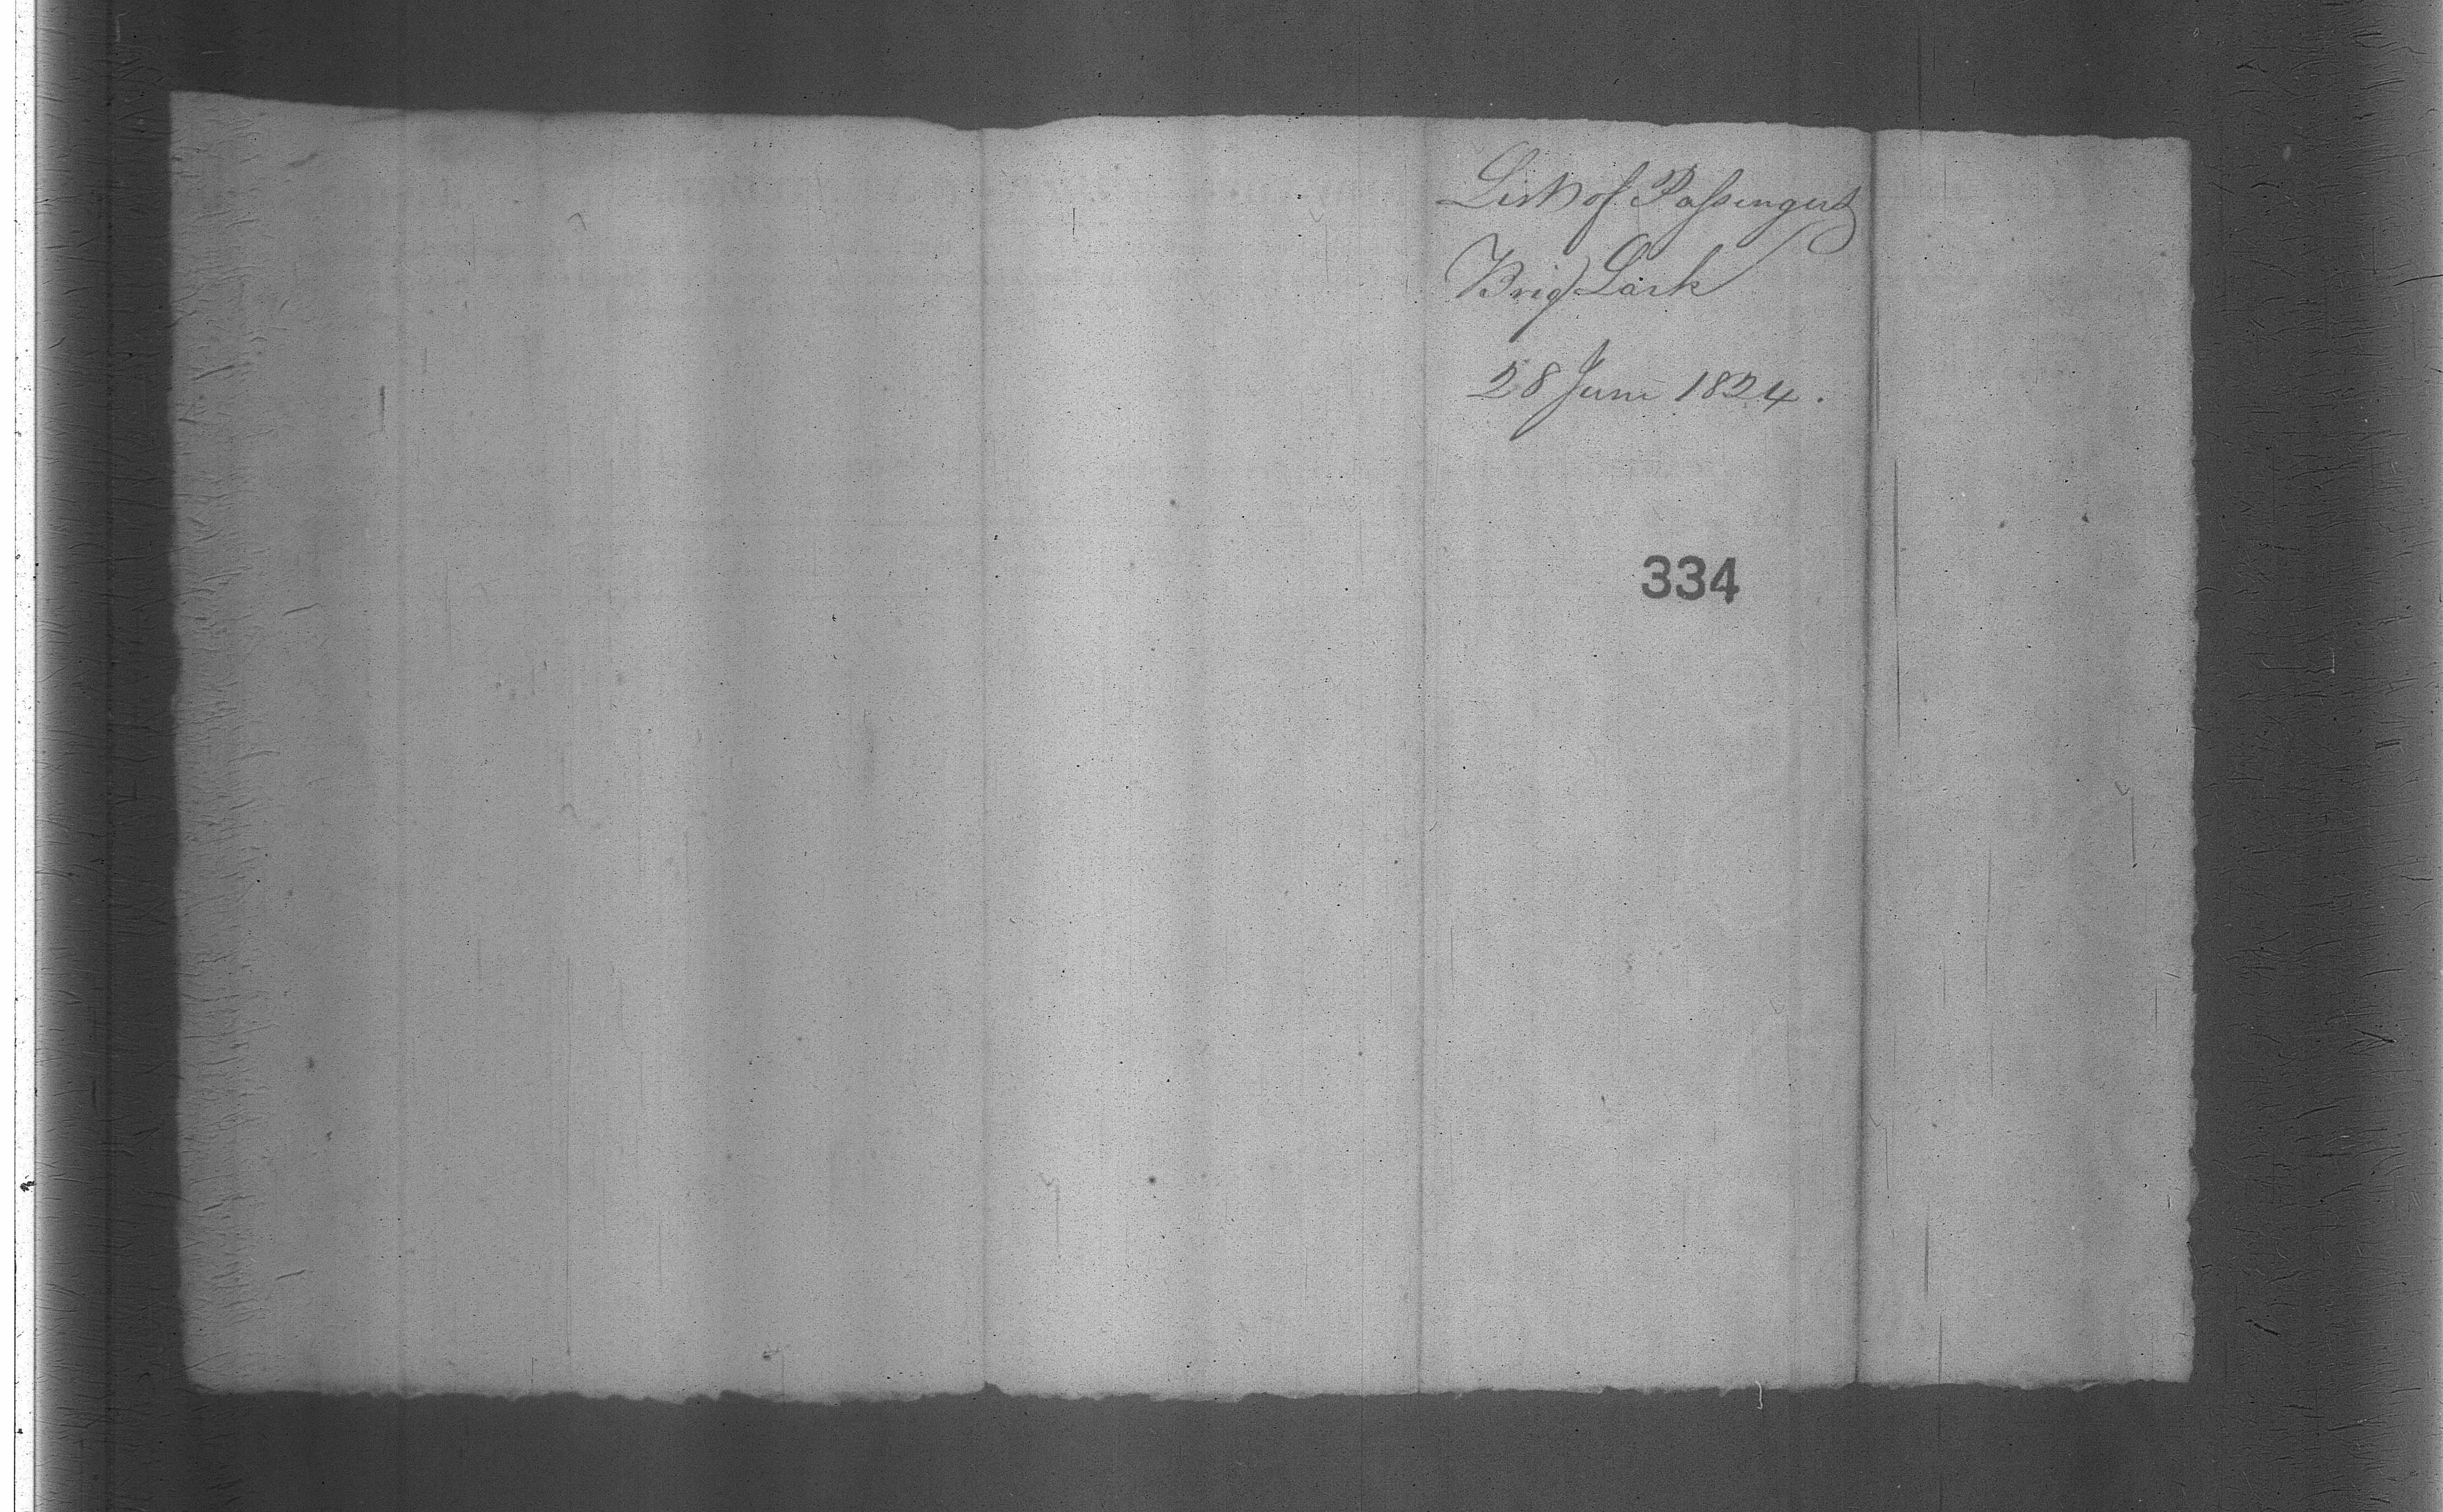 List of Passengers
Brig Lark
28 June 1824.
334